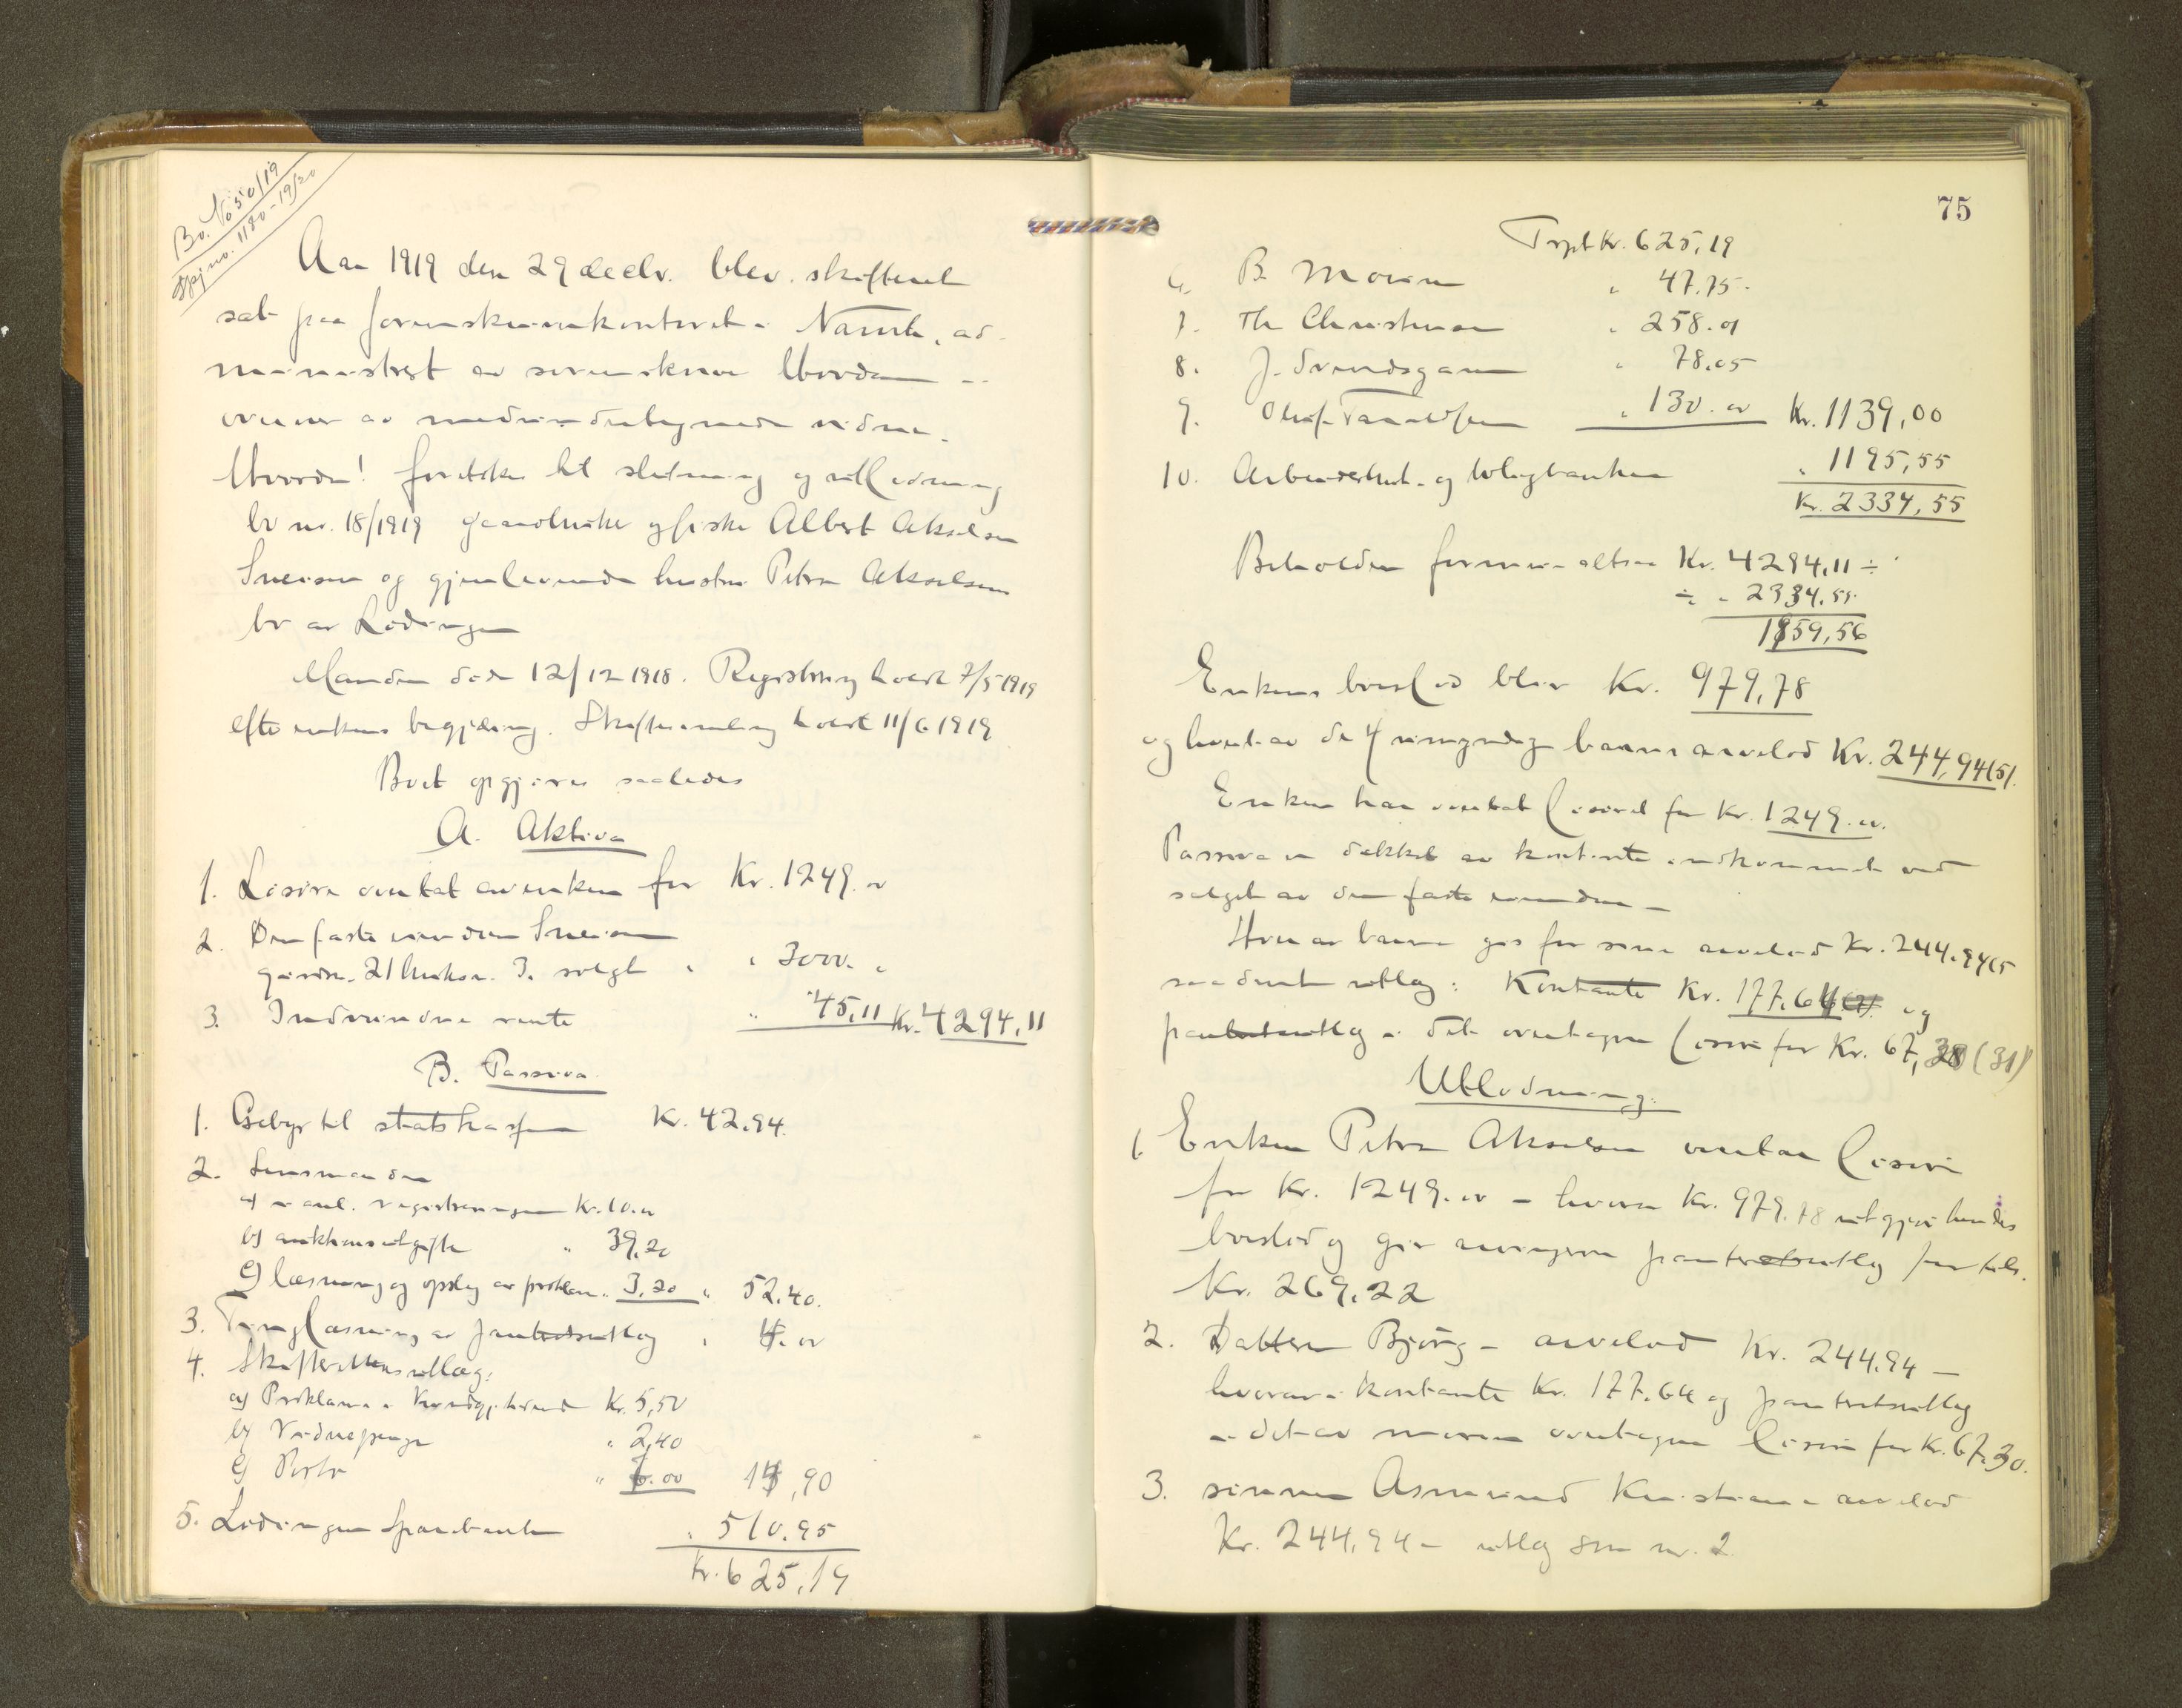 Bo. No 50/19
Aar 1919 den 29 decbr. blev skifteret
sat paa sorenskriverkontoret i Narvik, ad-
ministrert av sorenskriver
overvær av medundertegnede vidne.
Hvorda! foretokes til slutning og utlodning
bo nr. 18/1919 gaardbruker og fisker Albert Akselsen
Sneisen og gjenlevende hustru Petra Akselsens
bo av Lødingen
Manden døde 12/12 1918. Registrering holdt 7/5 1919
efter enkens begjæring. Skiftesamling holdt 11/6 1919
Boet opgjøres saaledes
A. Aktiva
1. Løsøre overtat av enken for Kr. 1249.00
2. Den faste eiendom Sneisen
gaardsnr. 21 bruksnr. 3. solgt " " 3000. "
3. Indvundne rente " 45,11 Kr. 4294,11
B. Passiva
1. Gebyr til statskassen Kr. 42.94.
2. Lensmanden
a) i anl. registreringen Kr. 10.00
b) auktionsutgifter " 39,20
c) læsning og opslag av proklam. " 3,20 " 52,40.
3. Tinglæsning av panteretsutlæg " 4.00
4. Skifterettens utlæg:
a) Proklama i Kundgj.tidende Kr. 5,50
b) Vidnepenger " 2,40
c) Porto " 6.00 14,90
5. Lødingen Sparebank " 510.95
Kr. 625,19
75
Trspt Kr. 625,19
6. B. Moren " 47.75.
7. Th Christensen " 258.01
8. J. Svendsgam " 78.05
9. Oluf " 130.00 Kr. 1139,00
10. Arbeiderbruk- og boligbanken " 1195,55
Kr. 2334,55
Beholden formue altsaa Kr. 4294,11 ÷
÷ " 2334.55.
1959,56
Enkens boeslod blir Kr. 979,78
og hver av de 4 umyndige barns arvelod Kr. 244,94(5).
Enken har overtat løsøret for Kr. 1249.00.
Passiva er dækket av kontante indkommet ved
salget av den faste eiendom –
Hver av barna gis for sin arvelod Kr. 244.94(5
saadant utlæg: Kontante Kr. 177.64 og
panteretsutlæg i det overtagne løsøre for Kr. 67,30 (31)
Utlodning:
1. Enken Petra Akselsen overtar løsøre
for Kr. 1249.00 – hvorav Kr. 979.78 utgjør hendes
boeslod og gir arvingerne panteretsutlæg for tils.
Kr. 269,22
2. Datteren Bjørg – arvelod Kr. 244.94 –
hvorav i kontante Kr. 177.64 og panteretsutlæg
i det av moren overtagne løsøre for Kr. 67,30.
3. sønnen Asmund Kristian i arvelod
Kr. 244,94 – utlæg som nr. 2